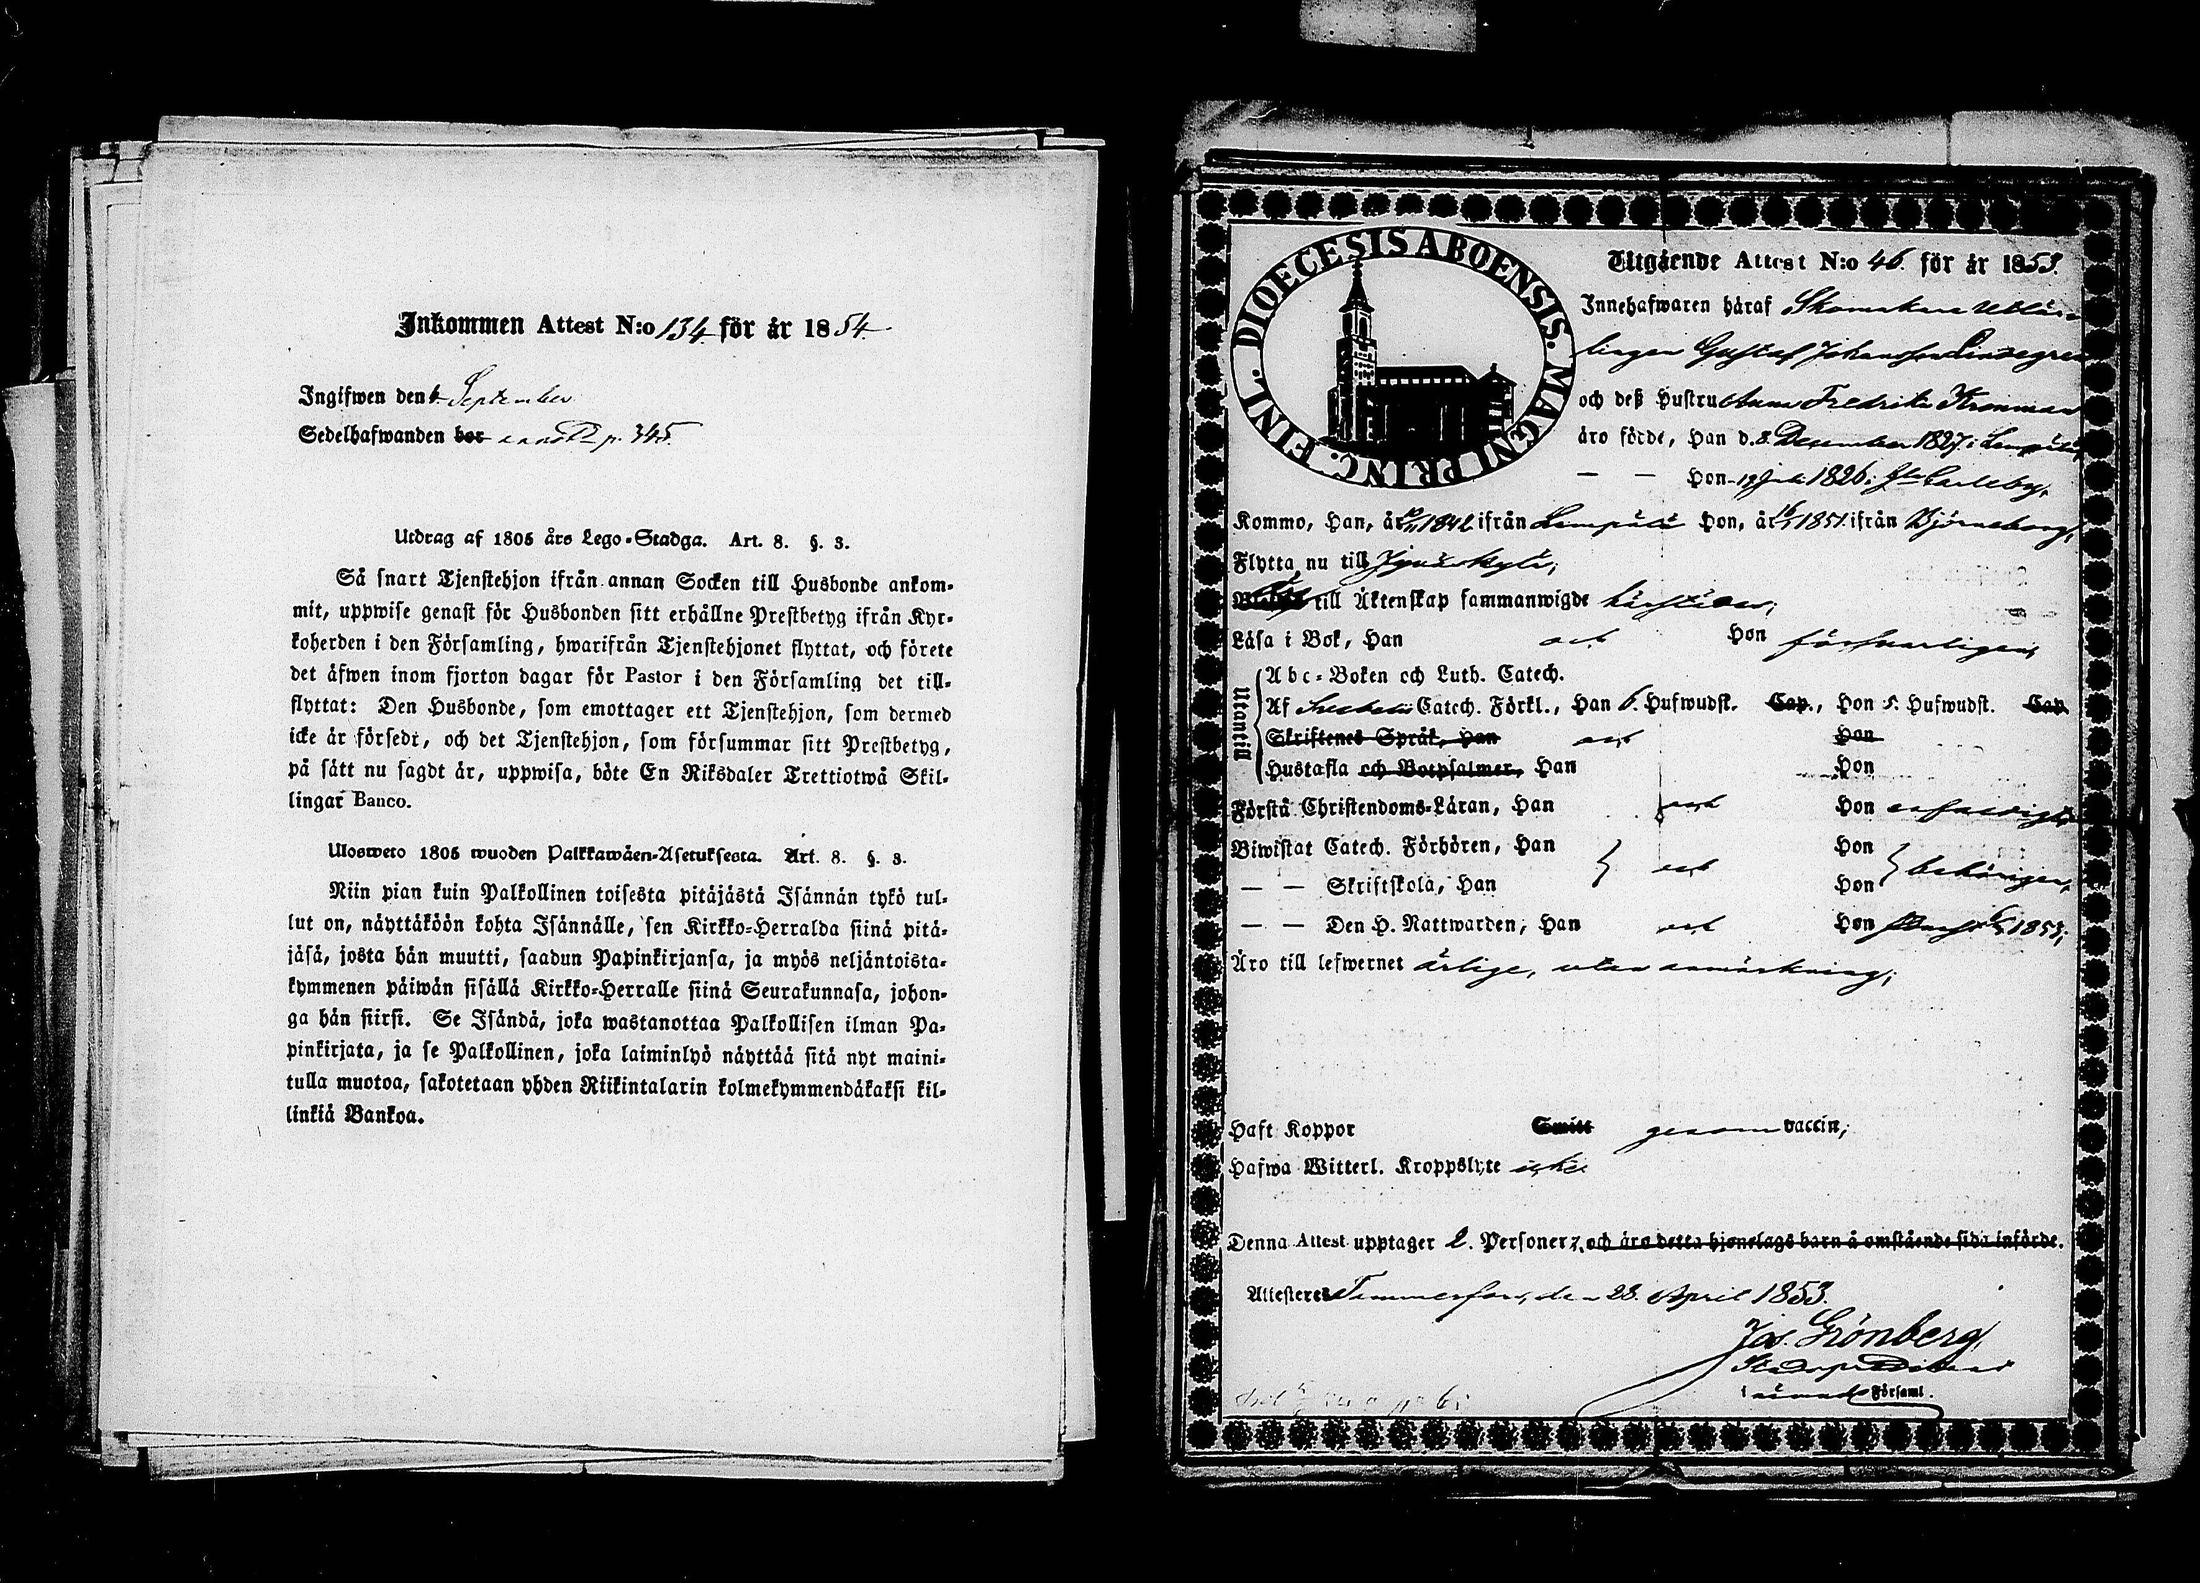 Inkommen Attest N:o 134 för år 1854.
Ingifwen den 6 September
Sedelhafwanden bor p. 345.
Utdrag af 1805 års Lego-Stadga. Art. 8. §. 3.
Så snart Tjenstehjon ifrån annan Socken till Husbonde ankom-
mit, uppwise genast för Husbonden sitt erhållne Prestbetyg ifrån Kyr-
koherden i den Församling, hwarifrån Tjenstehjonet flyttat, och förete
det äfwen inom fjorton dagar för Pastor i den Församling det till-
flyttat: Den Husbonde, som emottager ett Tjenstehjon, som dermed
icke är försedt, och det Tjenstehjon, som försummar sitt Prestbetyg,
på sätt nu sagdt är, uppwisa, böte En Riksdaler Trettiotwå Skil-
lingar Banco.
Ulosweto 1805 wuoden Palkkawäen-Asetuksesta. Art. 8. §. 3.
Niin pian kuin Palkollinen toisesta pitäjästä Isännän tykö tul-
lut on, näyttäköön kohta Isännälle, sen Kirkko-Herralda siinä pitä-
jäsä, josta hän muutti, saadun Papinkirjansa, ja myös neljäntoista-
kymmenen päiwän sisällä Kirkko-Herralle siinä Seurakunnasa, johon-
ga hän siirsi. Se Isändä, joka wastanottaa Palkollisen ilman Pa-
pinkirjata, ja se Palkollinen, joka laiminlyö näyttää sitä nyt maini-
tulla muotoa, sakotetaan yhden Riikintalarin kolmekymmendäkaksi kil-
linkiä Bankoa.
DIOECESIS ABOENSIS. MAGNI PRINC. FINL.
Utgående Attest N:o 46. för år 1853.
Innehafwaren häraf Skomakare Utlär-
lingen Gustaf Johansson Lindegren
och deß Hustru Anna Fredrika Kronman
äro födde, Han d. 8 December 1827 i Lempäälä,
— — Hon - 19 Juli 1826 i Gla Carleby,
Kommo, Han, år 1842 ifrån Lempäälä Hon, år 1851 ifrån Björneborg,
Flytta nu till Jyväskylä,
till Äktenskap sammanwigde härstädes;
Läsa i Bok, Han och Hon förswarligen,
Utantill
Abc-Boken och Luth. Catech.
Af Svebelii Catech. Förkl., Han 6. Hufwudst. Cap., Hon 5. Hufwudst. Cap.
Skriftenes Språk, Han och Hon
Hustafla och Botpsalmer, Han Hon
Förstå Christendoms-Läran, Han och Hon enfaldigt,
Biwistat Catech. Förhören, Han och Hon behörigen,
— — Skriftskola, Han Hon
— — Den H. Nattwarden, Han och Hon 1853;
Äro till lefwernet ärlige, utan anmärkning;
Haft Koppor Smitt genom vaccin;
Hafwa Witterl. Kroppslyte icke
Denna Attest upptager 2. Personer, och äro detta hjonelags barn å omstående sida införde.
Attesteres Tammerfors, den 28. April 1853.
Jos. Grönberg
Stadspredikant
i nämnde Församl.